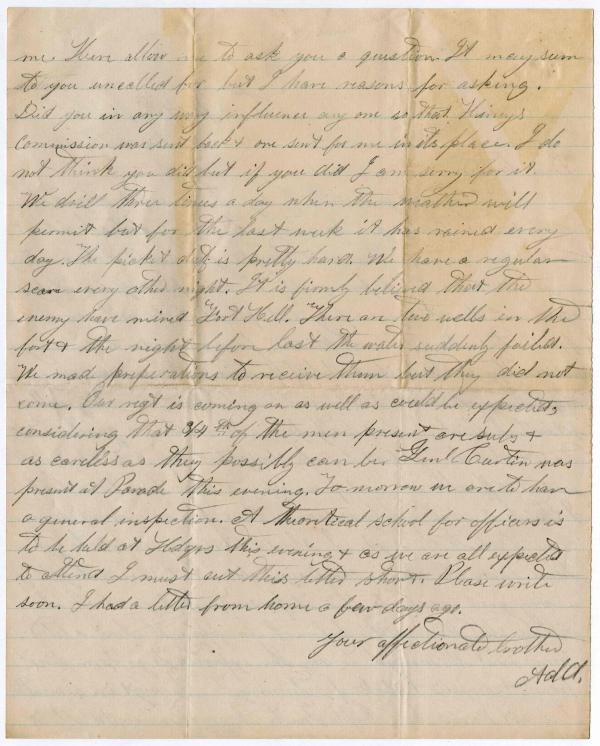 me. Here allow me to ask you a question. It may seem
to you uncalled for but I have reasons for asking.
Did you in any way influence any one so that Haneys
Commission was sent back & one sent for me in its place. I do
not think you did but if you did I am sorry for it.
We drill three times a day when the weather will
permit but for the last week it has rained every
day. The picket duty is pretty hard. We have a regular
scare every other night. It is firmly believed that the
enemy have mined "Fort Hell." There are two wells in the
fort & the night before last the water suddenly failed.
We made preparations to receive them but they did not
come. Our regt is coming on as well as could be expected,
considering that 3/4 th of the men present are subs &
as careless as they possibly can be. Genl Curtin was
present at Parade this evening. To morrow we are to have
a general inspection. A theoretical school for officers is
to be held at Hdqrs this evening & as we are all expected
to attend I must cut this letter short. Please write
soon. I had a letter from home a few days ago.
Your affectionate brother